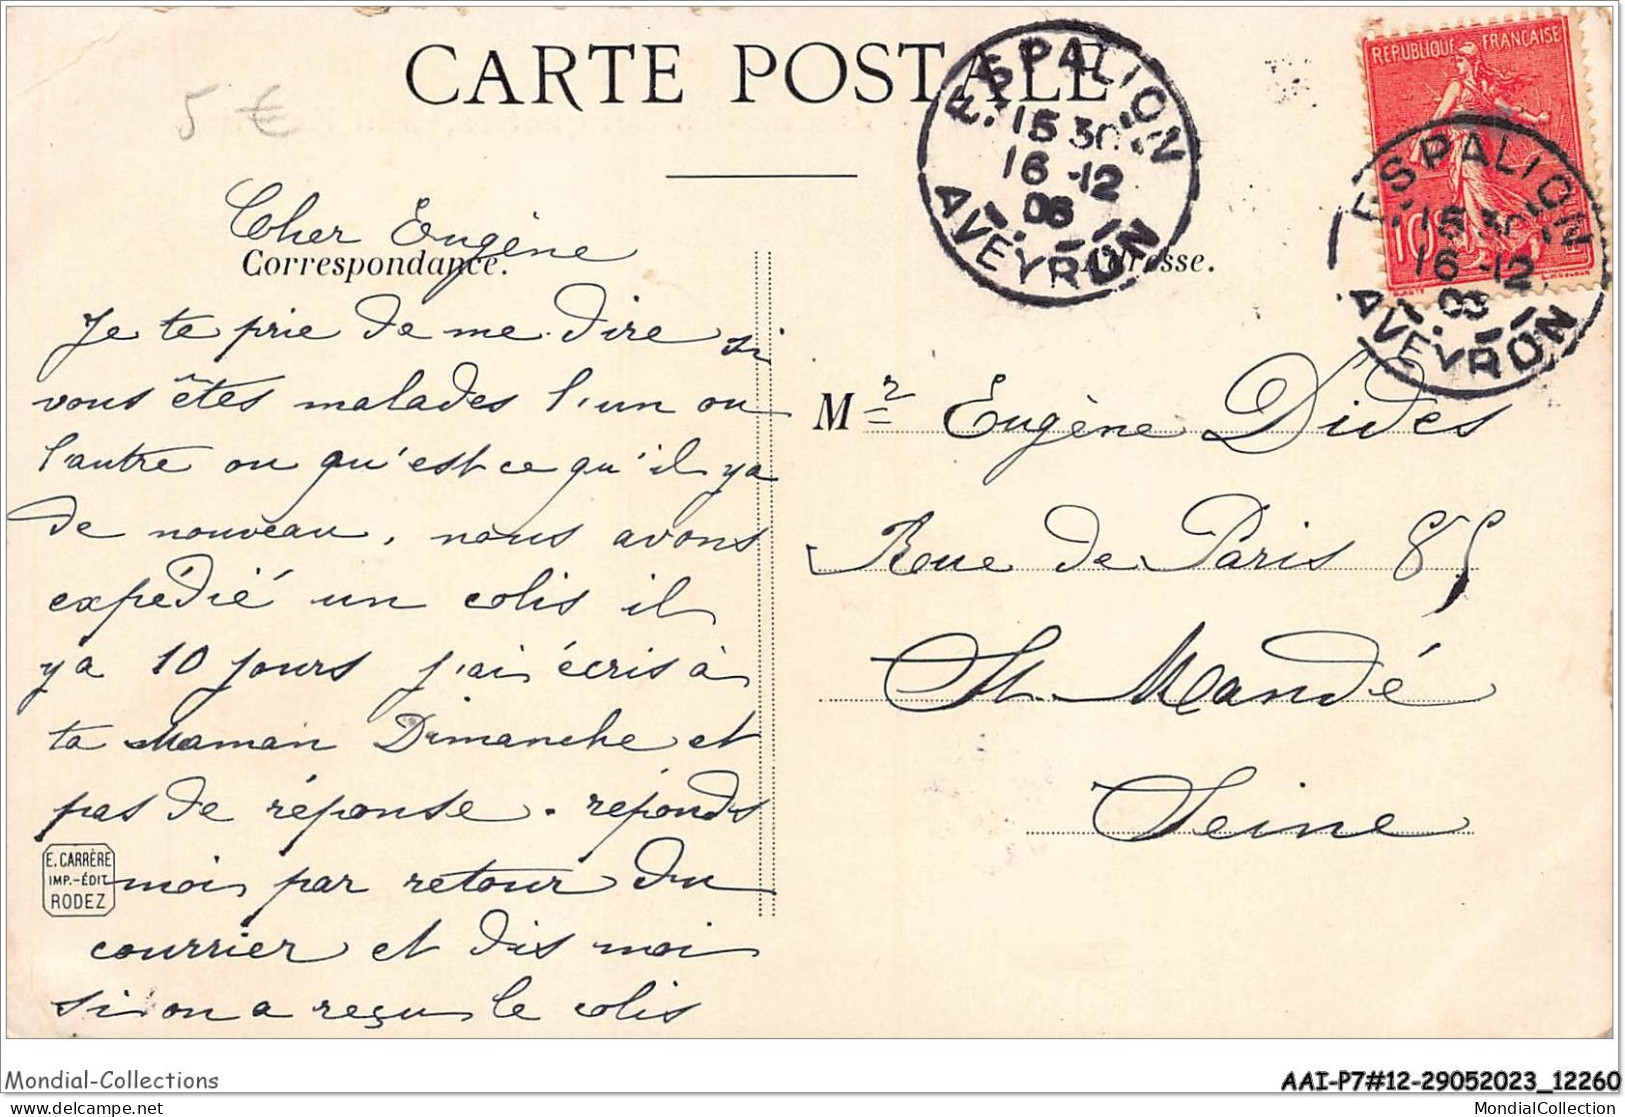 CARTE POSTALE
5 €
ESPALION
15 30
16 -12
06
AVEYRON
REPUBLIQUE FRANÇAISE
10c
ESPALION
15 30
16 -12
AVEYRON
Correspondance.
Adresse.
Cher Eugène
Je te prie de me dire si
vous êtes malades l'un ou
l'autre ou qu'est ce qu'il ya
de nouveau, nous avons
expédié un colis il
ya 10 jours j'ai écris à
ta Maman Dimanche et
pas de réponse. réponds
moi par retour du
courrier et dis moi
si on a reçu le colis
E. CARRÈRE
IMP.-ÉDIT.
RODEZ
Mr Eugène Dides
Rue de Paris 85
St. Mandé
Seine
Mondial-Collections
AAI-P7#12-29052023_12260
delcampe.net
MondialCollection